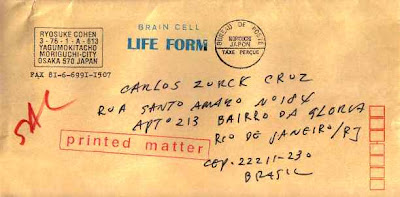 RYOSUKE COHEN
3-76-1-A-613
YAGUMOKITACHO
MORIGUCHI-CITY
OSAKA 570 JAPAN
FAX 81-6-6991-1507
BRAIN CELL
LIFE FORM
BUREAU DE POSTE
MORIGUCHI
JAPON
TAXE PERÇUE
SAL
CARLOS ZURCK CRUZ
RUA SANTO AMARO Nº 184
APTº 213 BAIRRO DA GLORIA
RIO DE JANEIRO/RJ
CEP. 22211-230
BRASIL
printed matter